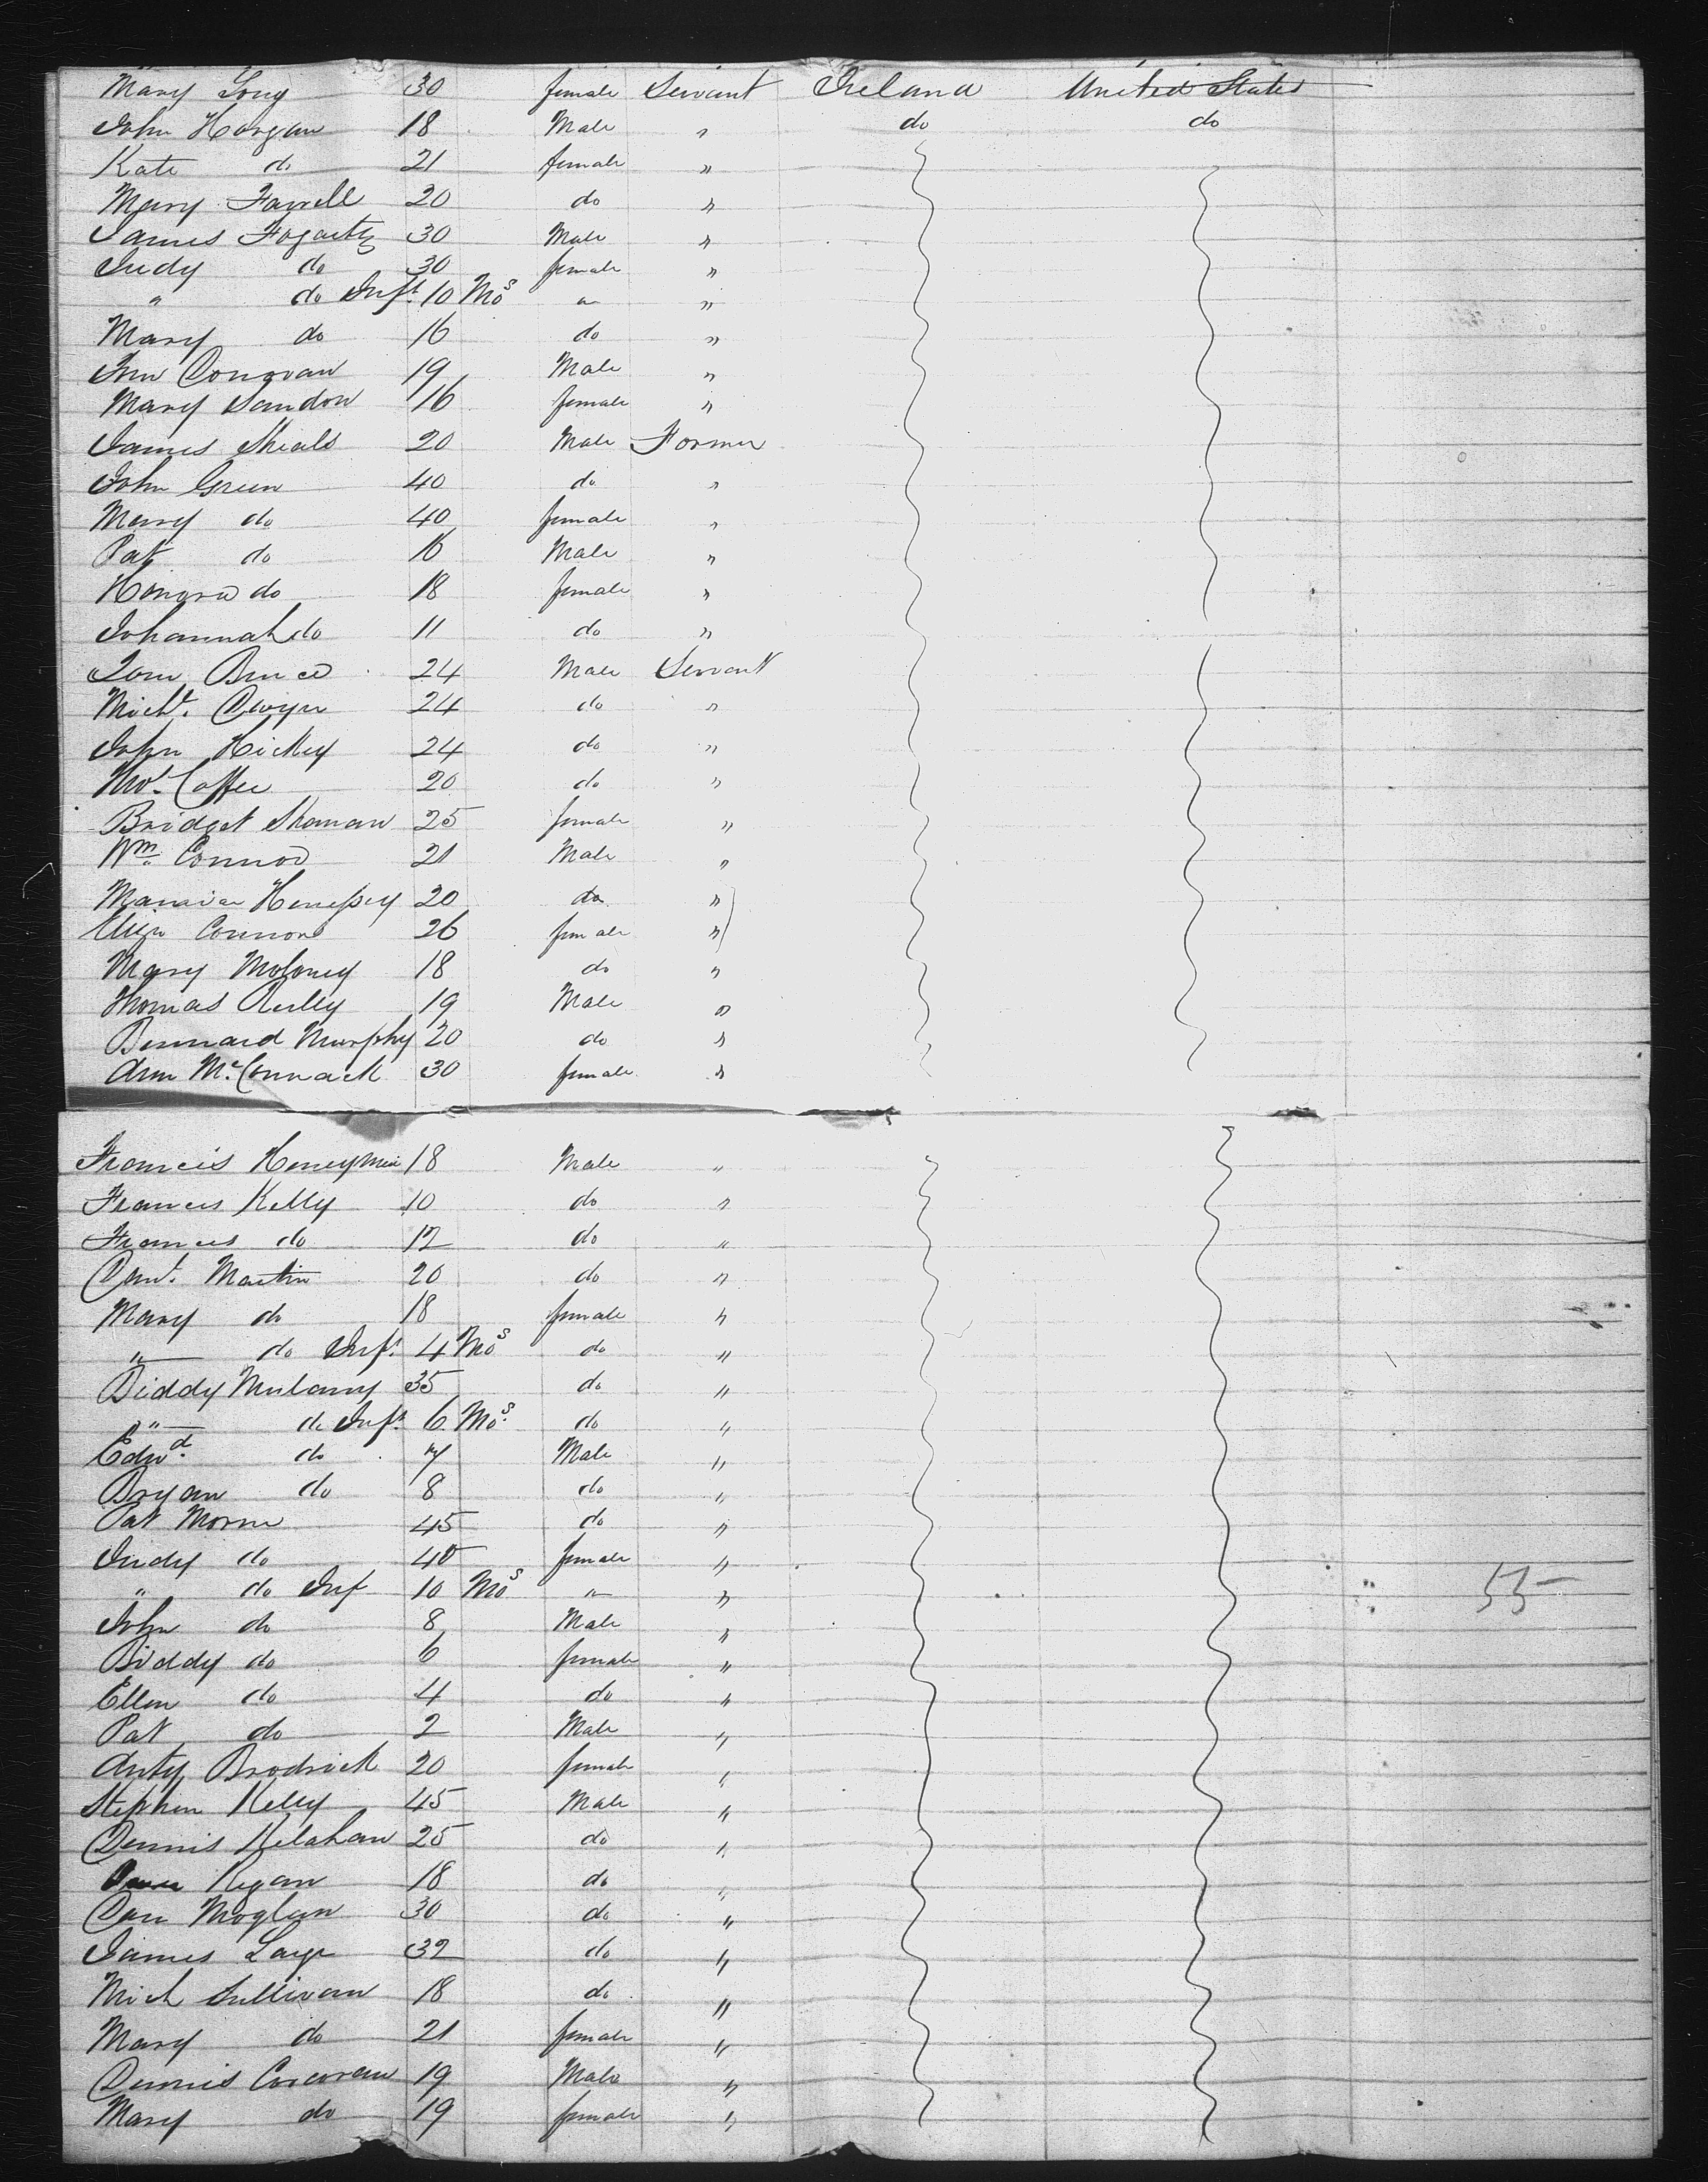 Mary Long 30 female Servant Ireland United States
John Horgan 18 Male " do do
Kate do 21 female "
Mary Farrell 20 do "
James Fogarty 30 Male "
Judy do 30 female "
" do Inft. 10 Mos " "
Mary do 16 do "
Jno Donovan 19 Male "
Mary Landon 16 female "
James Sheals 20 Male Farmer
John Green 40 do "
Mary do 40 female "
Pat do 16 Male "
Honora do 18 female "
Johannah do 11 do "
Tom Bruce 24 Male Servant
Michl. Dwyer 24 do "
John Hickey 24 do "
Coffee 20 do "
Bridget 25 female "
Wm. Connor 21 Male "
Henessey 20 do "
Eliza Connors 26 female "
Mary Moloney 18 do "
Thomas Reilly 19 Male "
Bernnard Murphy 20 do "
Ann McConnack 30 female "
Francis 18 Male "
Frances Kelly 10 do "
Frances do 12 do "
Martin 20 do "
Mary do 18 female "
" do Inft. 4 Mos do "
Biddy Mulamy 35 do "
" do Inft. 6 Mos. do "
Edwd. do 7 Male "
Bryan do 8 do "
Pat Morm 45 do "
Judy do 40 female "
" do Inf 10 Mos " "
55
John do 8 Male "
Biddy do 6 female "
Ellen do 4 do "
Pat do 2 Male "
Anty Brodrick 20 female "
Stephen Kelly 45 Male "
Dennis Kelahan 25 do "
Regan 18 do "
Dan 30 do "
James 32 do "
Mich Sullivan 18 do "
Mary do 21 female "
Dennis Corcoran 19 Male "
Mary do 19 female "